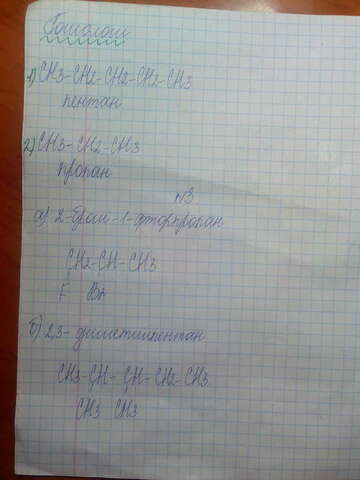 Гомологи
1) CH3-CH2-CH2-CH2-CH3
пентан
2) CH3-CH2-CH3
пропан
№3
а) 2-бром-1-фторпропан
CH2-CH-CH3
F Br
б) 2,3-диметилпентан
CH3-CH-CH-CH2-CH3
CH3 CH3